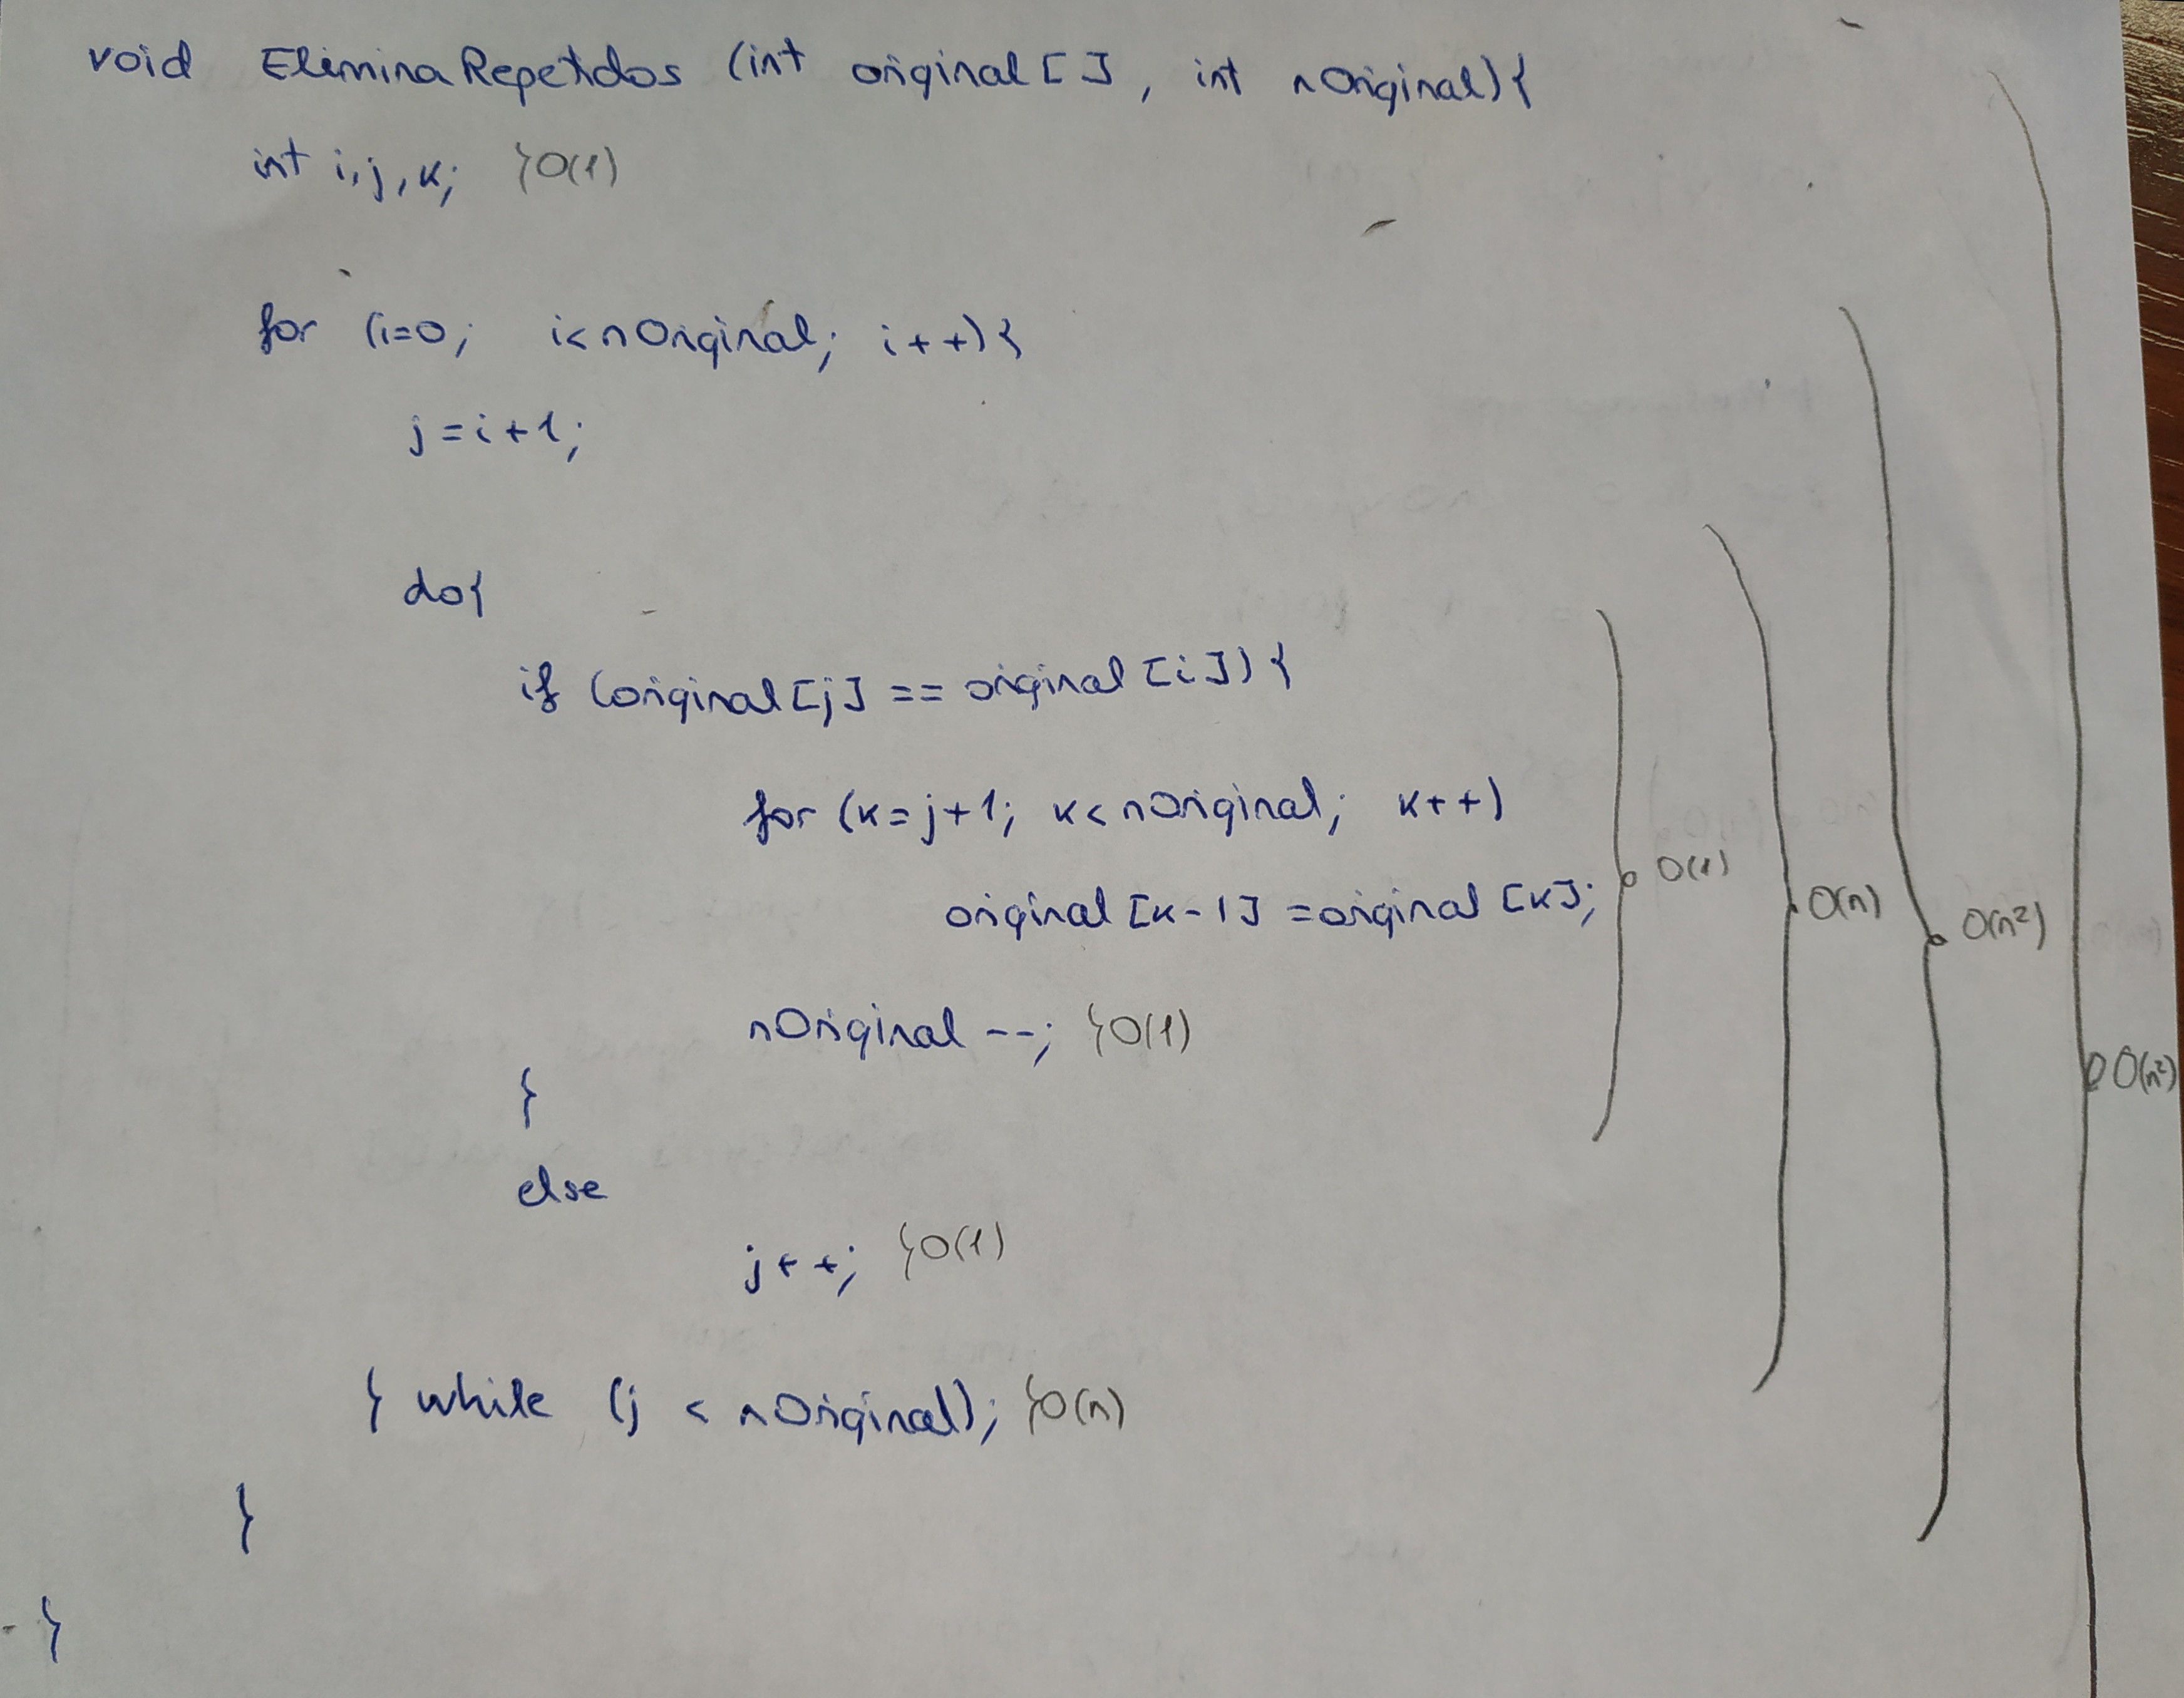 void EliminaRepetidos (int original[], int nOriginal){
int i,j,k; }O(1)
for (i=0; i<nOriginal; i++){
j=i+1;
do{
if (original[j] == original[i]){
for (k=j+1; k<nOriginal; k++)
original[k-1] = original[k]; O(1) O(n) O(n²)
nOriginal --; }O(1)
} O(n²)
else
j++; }O(1)
} while (j < nOriginal); }O(n)
}
}